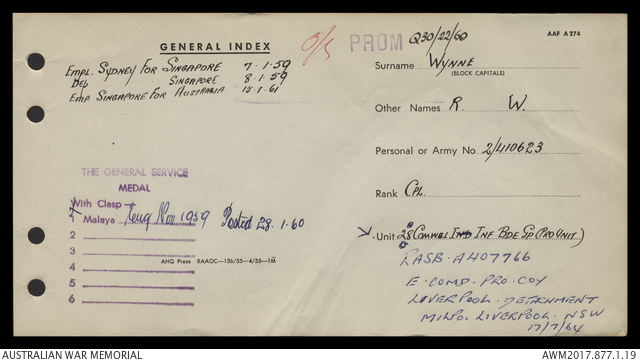 GENERAL INDEX
O/S
PROM
Q30/22/60
AAF A 274
Empl. SYDNEY FOR SINGAPORE 7.1.59
Deb SINGAPORE 8.1.59
Emp SINGAPORE FOR AUSTRALIA 15.1.61
Surname WYNNE
(BLOCK CAPITALS)
Other Names R. W.
Personal or Army No 2/410623
Rank CPL.
Unit 28 COMWEL INF BDE SP (PRO UNIT)
THE GENERAL SERVICE
MEDAL
With Clasp
Malaya Nov 1959 Posted 28.1.60
2
3
4
5
6
AHQ Press RAAOC—136/55—4/55—1M
RASB. AH07766
E. COMD. PRO. COY
LIVERPOOL. DETACHMENT
MILPO. LIVERPOOL. NSW
17/7/64
AUSTRALIAN WAR MEMORIAL
AWM2017.877.1.19